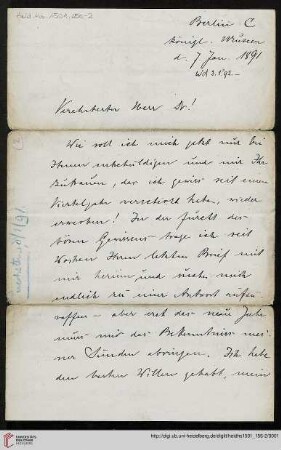 Berlin C
Königl. Museen
d. 7 Jan. 1891
Verehrtester Herr Dr!
Wie soll ich mich jetzt nur bei
Ihnen entschuldigen und mir Ihr
Zutrauen, das ich gewiss seit einem
Vierteljahr verscherzt habe, wieder
erwerben! In der Furcht des
bösen Gewissens trage ich seit
Wochen Ihren letzten Brief mit
mir herum und suche mich
endlich zu einer Antwort aufzu
raffen – aber erst das neue Jahr
muss mir das Bekenntniss mei
ner Sünden abringen. Ich habe
den besten Willen gehabt, mein
UNIVERSITÄTS-
BIBLIOTHEK
HEIDELBERG